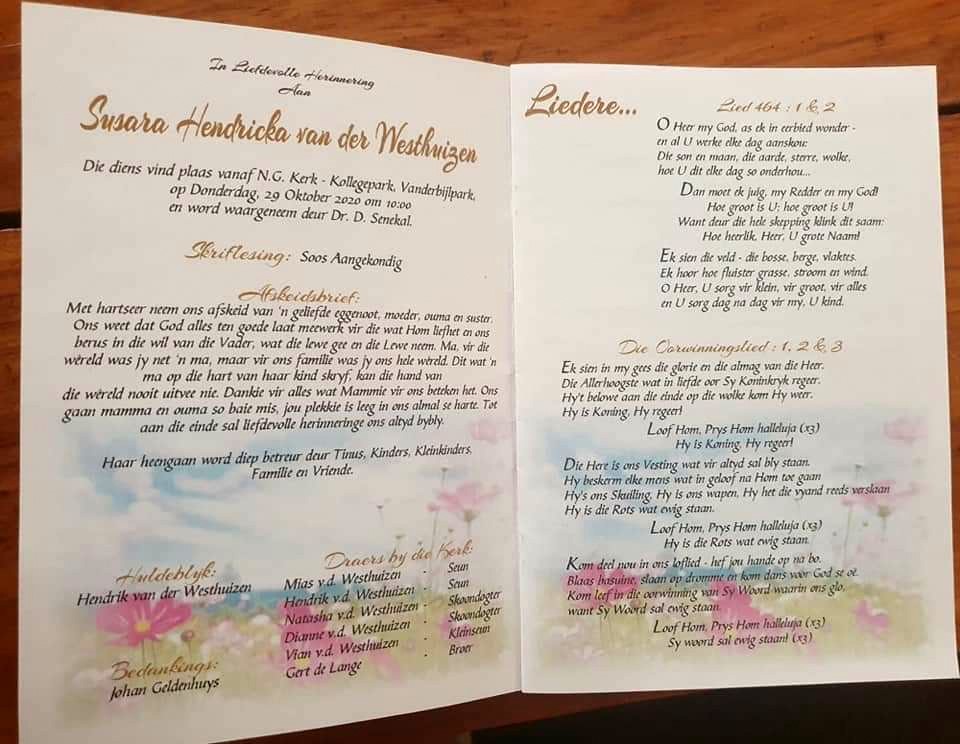 In Liefdevolle Herinnering
Aan
Susara Hendricka van der Westhuizen
Die diens vind plaas vanaf N.G. Kerk - Kollegepark, Vanderbijlpark,
op Donderdag, 29 Oktober 2020 om 10:00
en word waargeneem deur Dr. D. Senekal.
Skriflesing: Soos Aangekondig
Afskeidsbrief:
Met hartseer neem ons afskeid van 'n geliefde eggenoot, moeder, ouma en suster.
Ons weet dat God alles ten goede laat meewerk vir die wat Hom liefhet en ons
berus in die wil van die Vader, wat die lewe gee en die Lewe neem. Ma, vir die
wêreld was jy net 'n ma, maar vir ons familie was jy ons hele wêreld. Dit wat 'n
ma op die hart van haar kind skryf, kan die hand van
die wêreld nooit uitvee nie. Dankie vir alles wat Mammie vir ons beteken het. Ons
gaan mamma en ouma so baie mis, jou plekkie is leeg in ons almal se harte. Tot
aan die einde sal liefdevolle herinneringe ons altyd bybly.
Haar heengaan word diep betreur deur Tinus, Kinders, Kleinkinders,
Familie en Vriende.
Huldeblyk:
Hendrik van der Westhuizen
Bedankings:
Johan Geldenhuys
Draers by die Kerk:
Mias v.d. Westhuizen - Seun
Hendrik v.d. Westhuizen - Seun
Natasha v.d. Westhuizen - Skoondogter
Dianne v.d. Westhuizen - Skoondogter
Vian v.d. Westhuizen - Kleinseun
Gert de Lange - Broer
Liedere...
Lied 464 : 1 & 2
O Heer my God, as ek in eerbied wonder -
en al U werke elke dag aanskou:
Die son en maan, die aarde, sterre, wolke,
hoe U dit elke dag so onderhou...
Dan moet ek juig, my Redder en my God!
Hoe groot is U; hoe groot is U!
Want deur die hele skepping klink dit saam:
Hoe heerlik, Heer, U grote Naam!
Ek sien die veld - die bosse, berge, vlaktes.
Ek hoor hoe fluister grasse, stroom en wind.
O Heer, U sorg vir klein, vir groot, vir alles
en U sorg dag na dag vir my, U kind.
Die Oorwinningslied : 1, 2 & 3
Ek sien in my gees die glorie en die almag van die Heer.
Die Allerhoogste wat in liefde oor Sy Koninkryk regeer.
Hy't belowe aan die einde op die wolke kom Hy weer.
Hy is Koning, Hy regeer!
Loof Hom, Prys Hom halleluja (x3)
Hy is Koning, Hy regeer!
Die Here is ons Vesting wat vir altyd sal bly staan.
Hy beskerm elke mens wat in geloof na Hom toe gaan
Hy's ons Skuiling, Hy is ons wapen, Hy het die vyand reeds verslaan
Hy is die Rots wat ewig staan.
Loof Hom, Prys Hom halleluja (x3)
Hy is die Rots wat ewig staan.
Kom deel nou in ons loflied - hef jou hande op na bo.
Blaas basuine, slaan op dromme en kom dans voor God se oë.
Kom leef in die oorwinning van Sy Woord waarin ons glo,
want Sy Woord sal ewig staan.
Loof Hom, Prys Hom halleluja (x3)
Sy woord sal ewig staan! (x3)